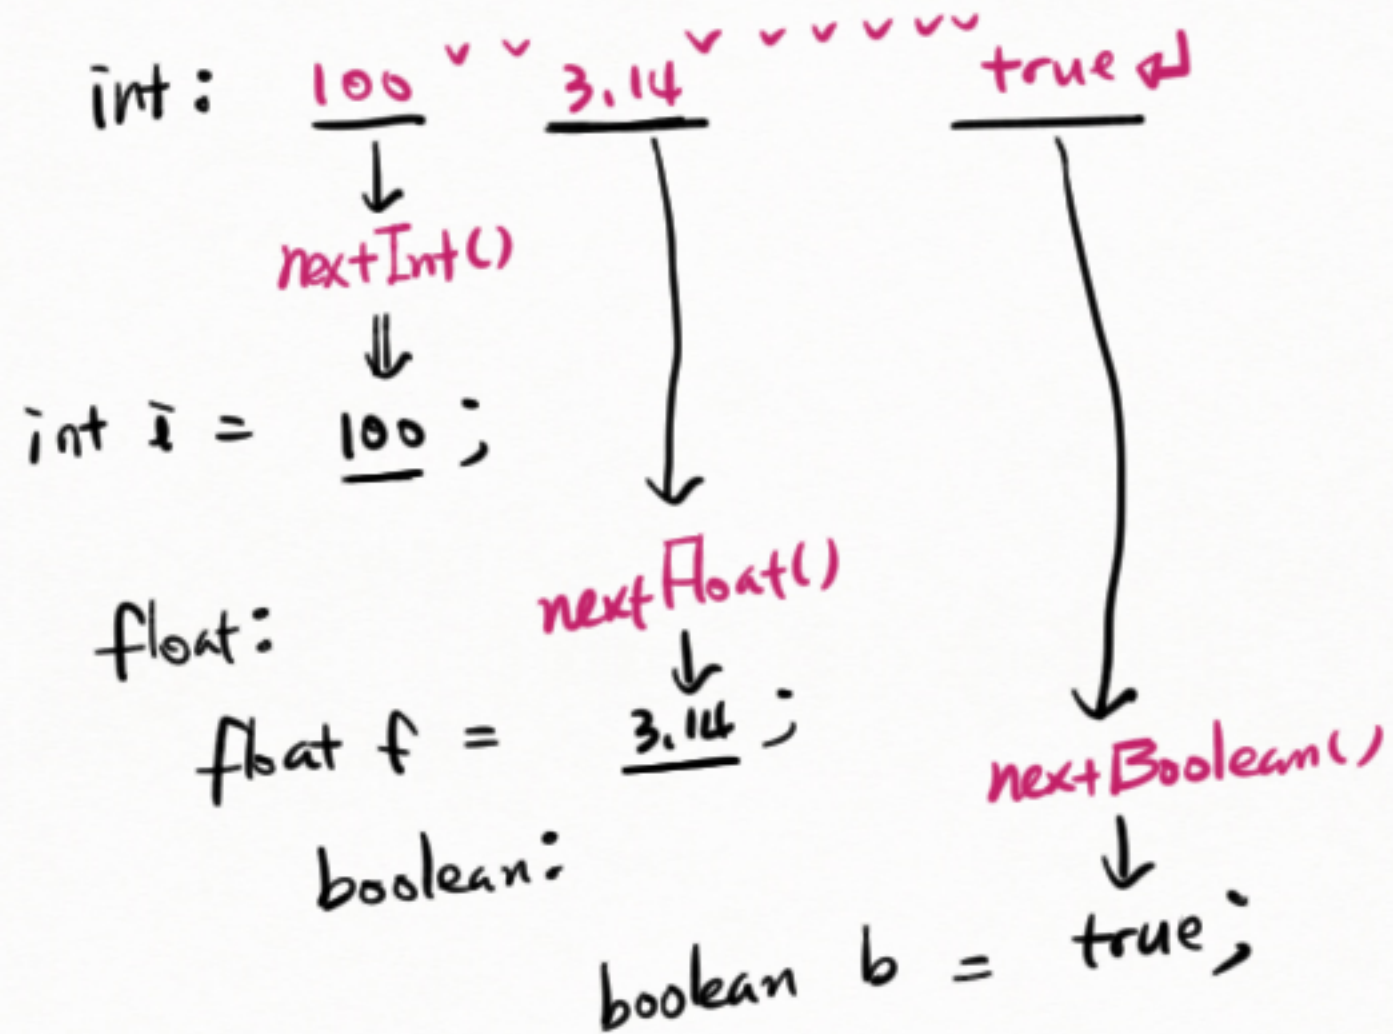 int: 100 ˅ ˅ 3.14 ˅ ˅ ˅ ˅ ˅ ˅ true ↵
nextInt()
int i = 100 ;
nextFloat()
float:
float f = 3.14 ;
nextBoolean()
boolean:
boolean b = true ;